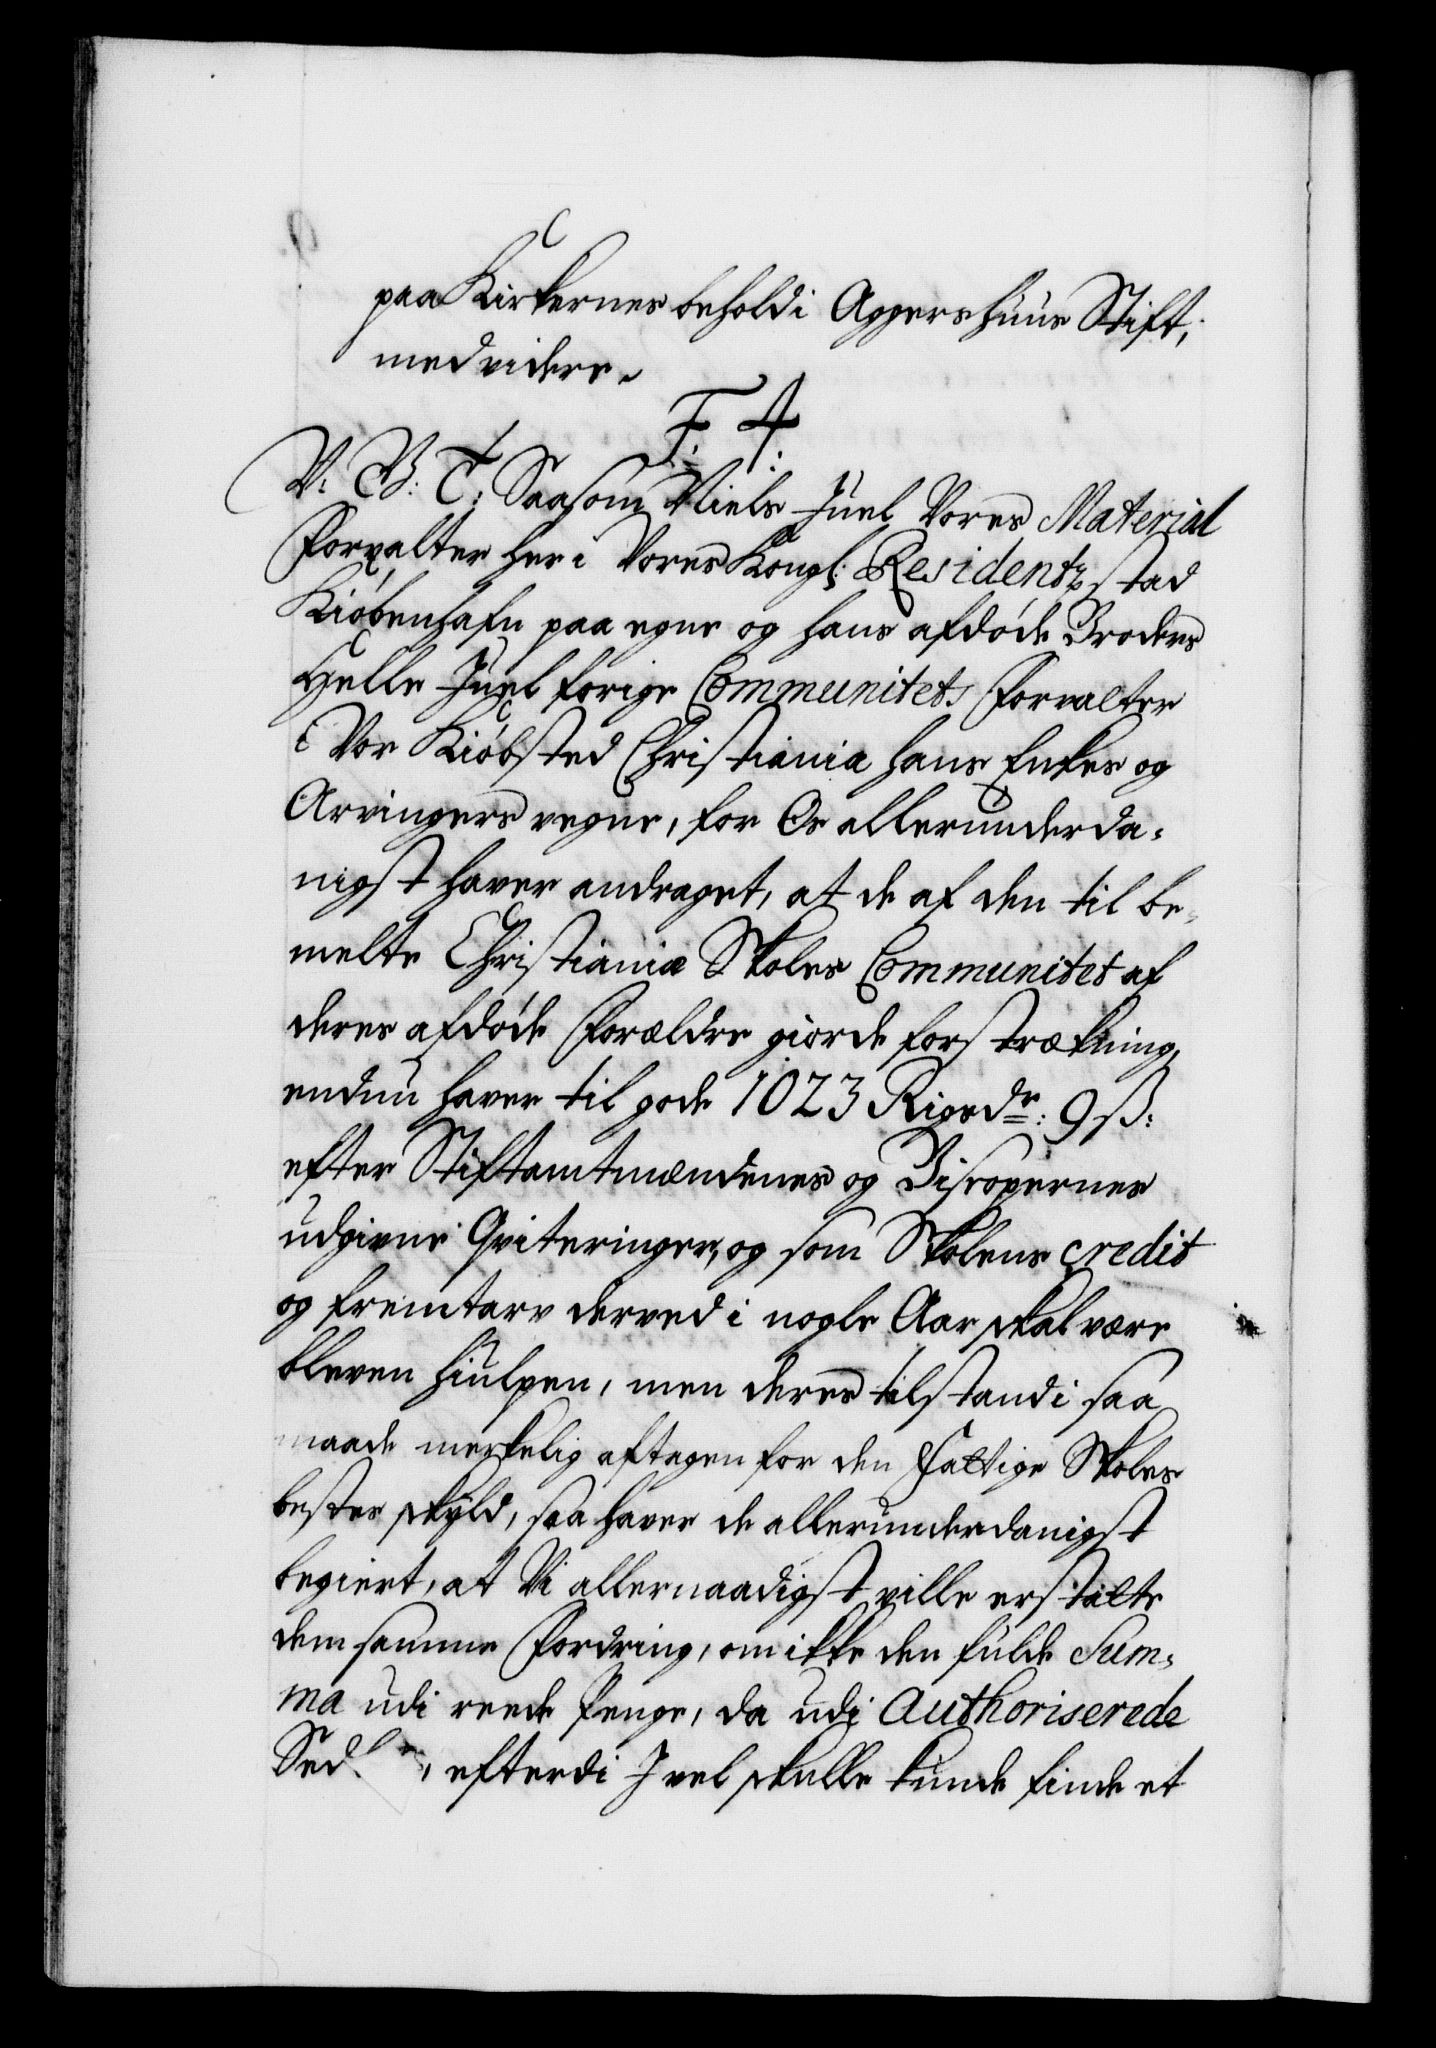 paa Kirkernes behold i Aggershuus Stift,
med videre.
F. 4.
V: G: T: Saasom Niels Juel Vores Material
Forvalter her i Vores Kongl: Residentz stad
Kiøbenhafn paa egne og hans afdøde Broders
Helle Juel forige Communitets Forvalter
i Vor Kiøbsted Christiania hans Enkes og
Arvingers vegne, for Os allerunderda-
nigst haver andraget, at de af den til be-
melte Christianiæ Skoles Communitet af
deres afdøde Forældre giorde forstrækning,
endnu haver til gode 1023 Rigsdr: 9 ß:
efter Stiftamtmændenes og Biscopernes
udgivne Qviteringer, og som Skolens credit
og fremtarv derved i nogle Aar skal være
bleven hiulpen, men deres tilstand i saa
maade merkelig aftagen for den fattige Skoles
bestes skyld, saa haver de allerunderdanigst
begiert, at Vi allernaadigst ville erstatte
dem samme Fordring, om ikke den fulde Sum-
ma udi reede Penge, da udi Authoriserede
Sedler, efterdi J vel skulle kunde finde et